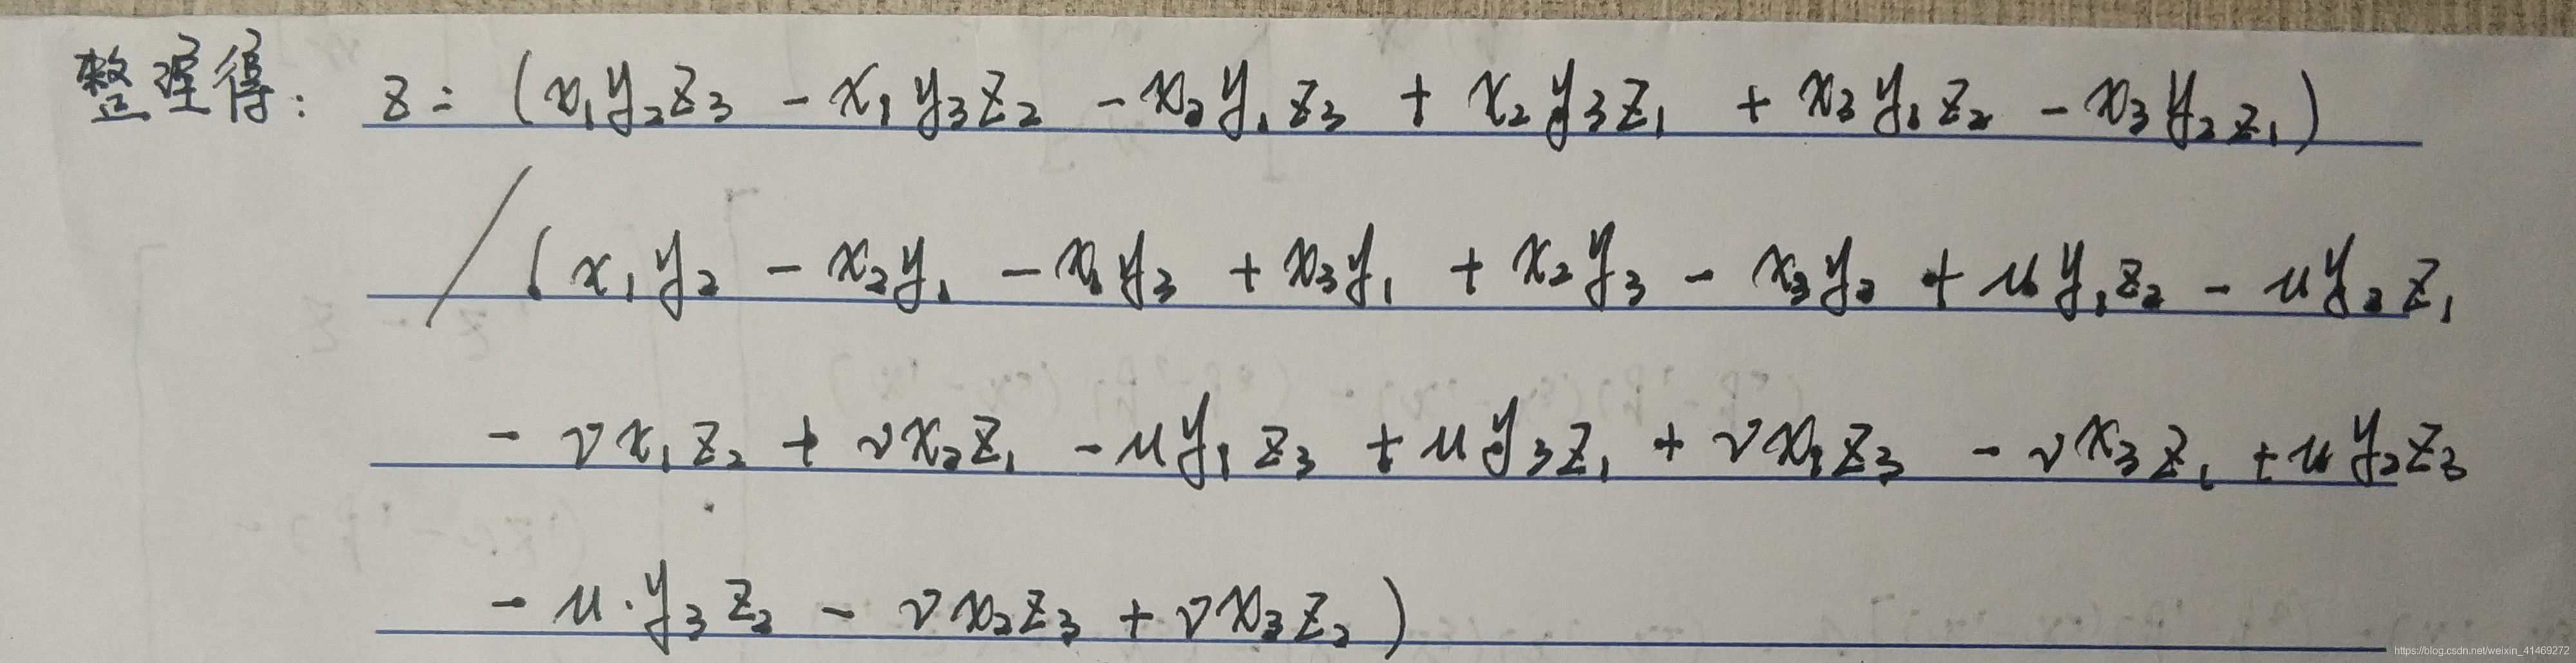 整理得: z = (x₁y₂z₃ - x₁y₃z₂ - x₂y₁z₃ + x₂y₃z₁ + x₃y₁z₂ - x₃y₂z₁)
/ (x₁y₂ - x₂y₁ - x₁y₃ + x₃y₁ + x₂y₃ - x₃y₂ + uy₁z₂ - uy₂z₁
- vx₁z₂ + vx₂z₁ - uy₁z₃ + uy₃z₁ + vx₁z₃ - vx₃z₁ + uy₂z₃
- u·y₃z₂ - vx₂z₃ + vx₃z₂)
https://blog.csdn.net/weixin_41469272